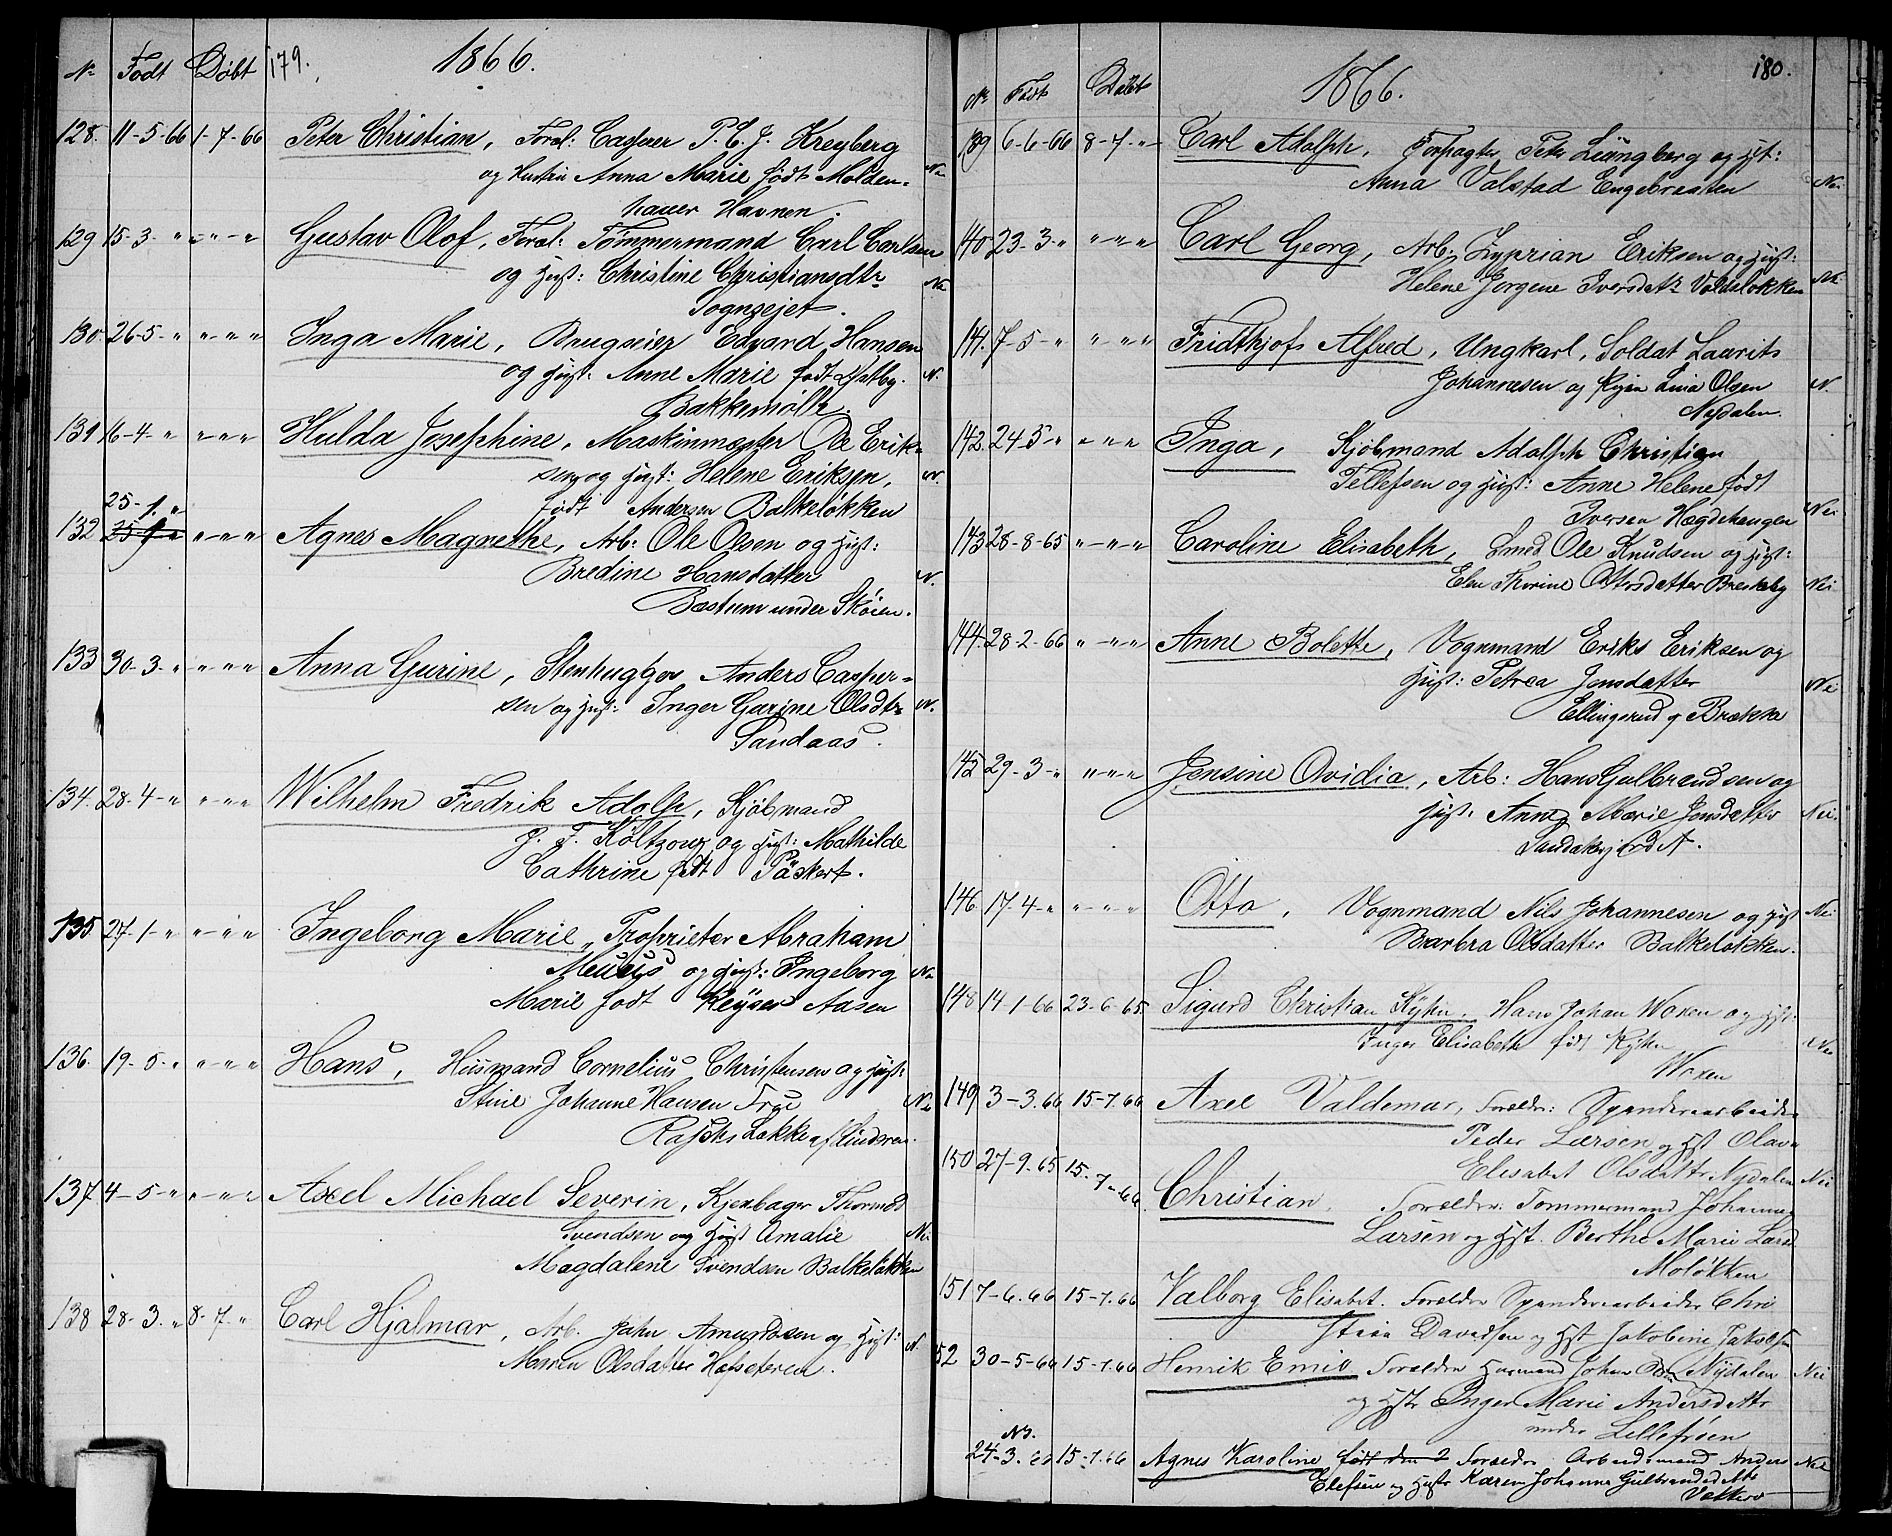 No Født Døbt 179. 1866.
128. 11-5-66 1-7-66 Peter Christian, Foræl: Casper P. C. J. Kreyberg
og Hustru Anna Marie født Molden- Nei
hauer Havnen.
129 15-3- " " - " - " Gustav Olof, Foræl: Tømmermand Carl Carlsen
og Hust: Christine Christiansdtr Nei
Sognsejet.
130. 26-5- " " - " - " Inga Marie, Brugseier Edvard Hansen
og Hust: Anne Marie født Hatby. N.
Bakkemølle.
131 16-4- " " - " - " Hulda Josephine, Maskinmester Ole Erik-
sen og Hust: Helene Eriksen, N.
født Andersen Balkeløkken
25-1. "
132 " - " - " Agnes Magnethe, Arb: Ole Olsen og Hust:
Bredine Hansdatter N.
Bestum under Skøien.
133 30-3- " " - " - " Anna Gurine, Stenhugger Anders Casper-
sen og Hust: Inger Garine Olsdtr N.
Sandaas.
134. 28-4- " " - " - " Wilhelm Fredrik Adolf, Kjøbmand
J. F. Koltzow og Hust: Mathilde
Cathrine født Päskert.
135 27-1- " " - " - " Ingeborg Marie, Proprietær Abraham
og Hust: Ingeborg Nei
Marie født Keyser Aasen
136. 19-5- " " - " - " Hans, Husmand Cornelius Christensen og Hust:
Stine Johanne Hansen Nei
Løkke
137 4-5- " " - " - " Axel Michael Severin, Thormod
Svendsen og Hust Amalie Nei
Magdalene Svendsen Balkeløkken
138 28-3. " 8-7- " Carl Hjalmar, Arb. John Amundsen og Hust: N.
Maren Olsdatter
No Født Døbt 1866. 180.
139 6-6-66 8-7- " Carl Adolph, Forpagter Peter Liungberg og Hst:
Anna Valstad Engebretsen Nei
140 23-3- " " " " Carl Georg, Arb: Zyprian Eriksen og Hust:
Helene Jørgene Iversdatr Voldsløkken Nei
141. 7-5- " " " " Fridthjofs Alfred, Ungkarl, Soldat Laurits
Johannesen og Pigen Lina Olsen N.
Nydalen.
142. 24-5- " " " " Inga, Kjøbmand Adolph Christian
Tellefsen og Hust: Anne Helene født
Iversen Hægdehaugen Nei
143 28-8-65 " - " - " Caroline Elisabeth, Smed Ole Knudsen og Hust:
Elen Thorine Ottersdatter Nei
144. 28-2-66 " - " - " Anne Bolette, Vognmand Eriks Eriksen og
Hust: Petrea Jonsdatter Nei
Ellingsrud Brække
145 29-3- " " " " Jensine Ovidia, Arb: Hans Gulbrandsen og
Hust. Anne Marie Jensdatter Nei.
Sandakerjordet.
146. 17-4- " " - " - " Otto, Vognmand Nils Johannesen og Hust Nei
Barbra Olsdatter Balkeløkken.
148 14-1-66 23-6-65. Sigurd Christian Kyhn, Hans Johan Woxen og Hst:
Inger Elisabeth født Kyhn Nei
Woxen
149 3-3.66 15-7.66 Axel Valdemar, Forældr: Spinderiarbeider
Peder Larsen og Hst Olava
Elisabet Olsdattr Nydalen Nei
150 27-9.65 15-7-66 Christian, Forældre: Tømmermand Johannes
Larsen og Hst. Berthe Marie Larsd
Moløkken
151 7-6.66 15-7.66 Valborg Elisabet. Forældre Spinderiarbeider Chri
stian Davidsen og Hst Jakobine Jakobsen
52 30-5-66 15-7.66 Henrik Emil Forældre Husmand Johan Olsen Nydalen Nei
og Hstr Inger Marie Andersdattr
under Lillefrøen
N3.
24-3.66 15-7.66 Agnes Karoline født den 2 Forældre Arbeidsmand Anders Nei
Elefsen og Hustr Karen Johanne Gulbrandsdattr
Vækkerø